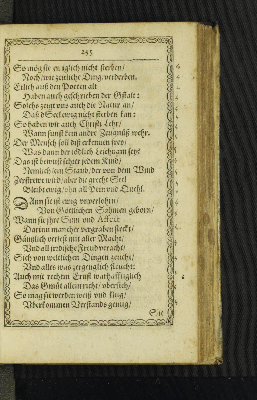 255
So mög sie ewiglich nicht sterben/
Noch/wie zeitliche Ding/verderben.
Etlich auß den Poeten alt
Haben auch geschrieben der Gstalt:
Solchs zeigt uns auch die Natur an/
Daß d'Seel ewig nicht sterben kan:
So haben wir auch Christi Lehr/
Wann sunst kein andre Zeugnuß wehr.
Der Mensch soll diß erkennen frey/
Was dann der ißdisch Leichnam sey:
Das ist bewust schier jedem Kind/
Nemlich kein Stand/der von dem Wind
Zerstrewt wird/aber die gerecht Seel
Bleibt ewig/ohn all Pein und Quehl.
Dann sie ist ewig unverlohrn/
Von Göttlichen Sahmen geborn/
Wann sie ihre Sinn und Affect
Darinn mancher vergraben steckt/
Gäntzlich verlest mit aller Macht/
Und all irrdische Frewd veracht/
Sich von weltlichen Dingen zeucht/
Und alles was zergenglich fleucht:
Auch mit rechtem Ernst warhafftiglich
Das Gmüt allein richt ubersich/
So mag sie werden weiß und klug/
Uberkommen Verstands genug/
Sie